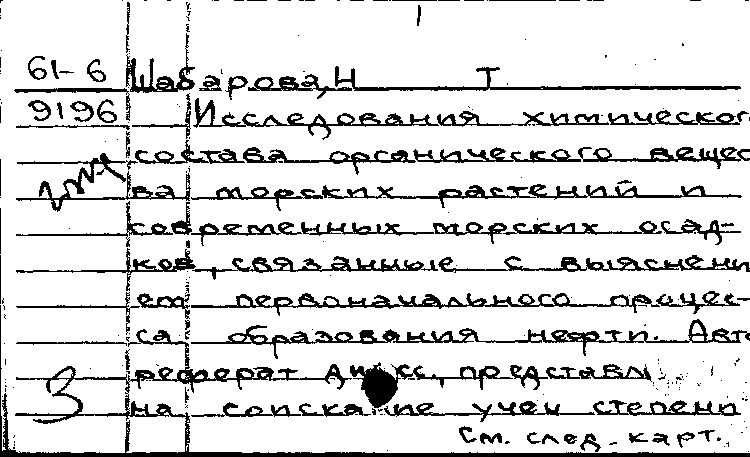 1
61-6 Шабарова, Н Т
9196 Исследования химического
состава органического вещес
ва морских растений и
современных морских осад-
ков, связанные с выяснени
ем первоначального процес-
са образования нефти. Авто
реферат дисс., представл
3 на соискание учен степени
См. след. карт.